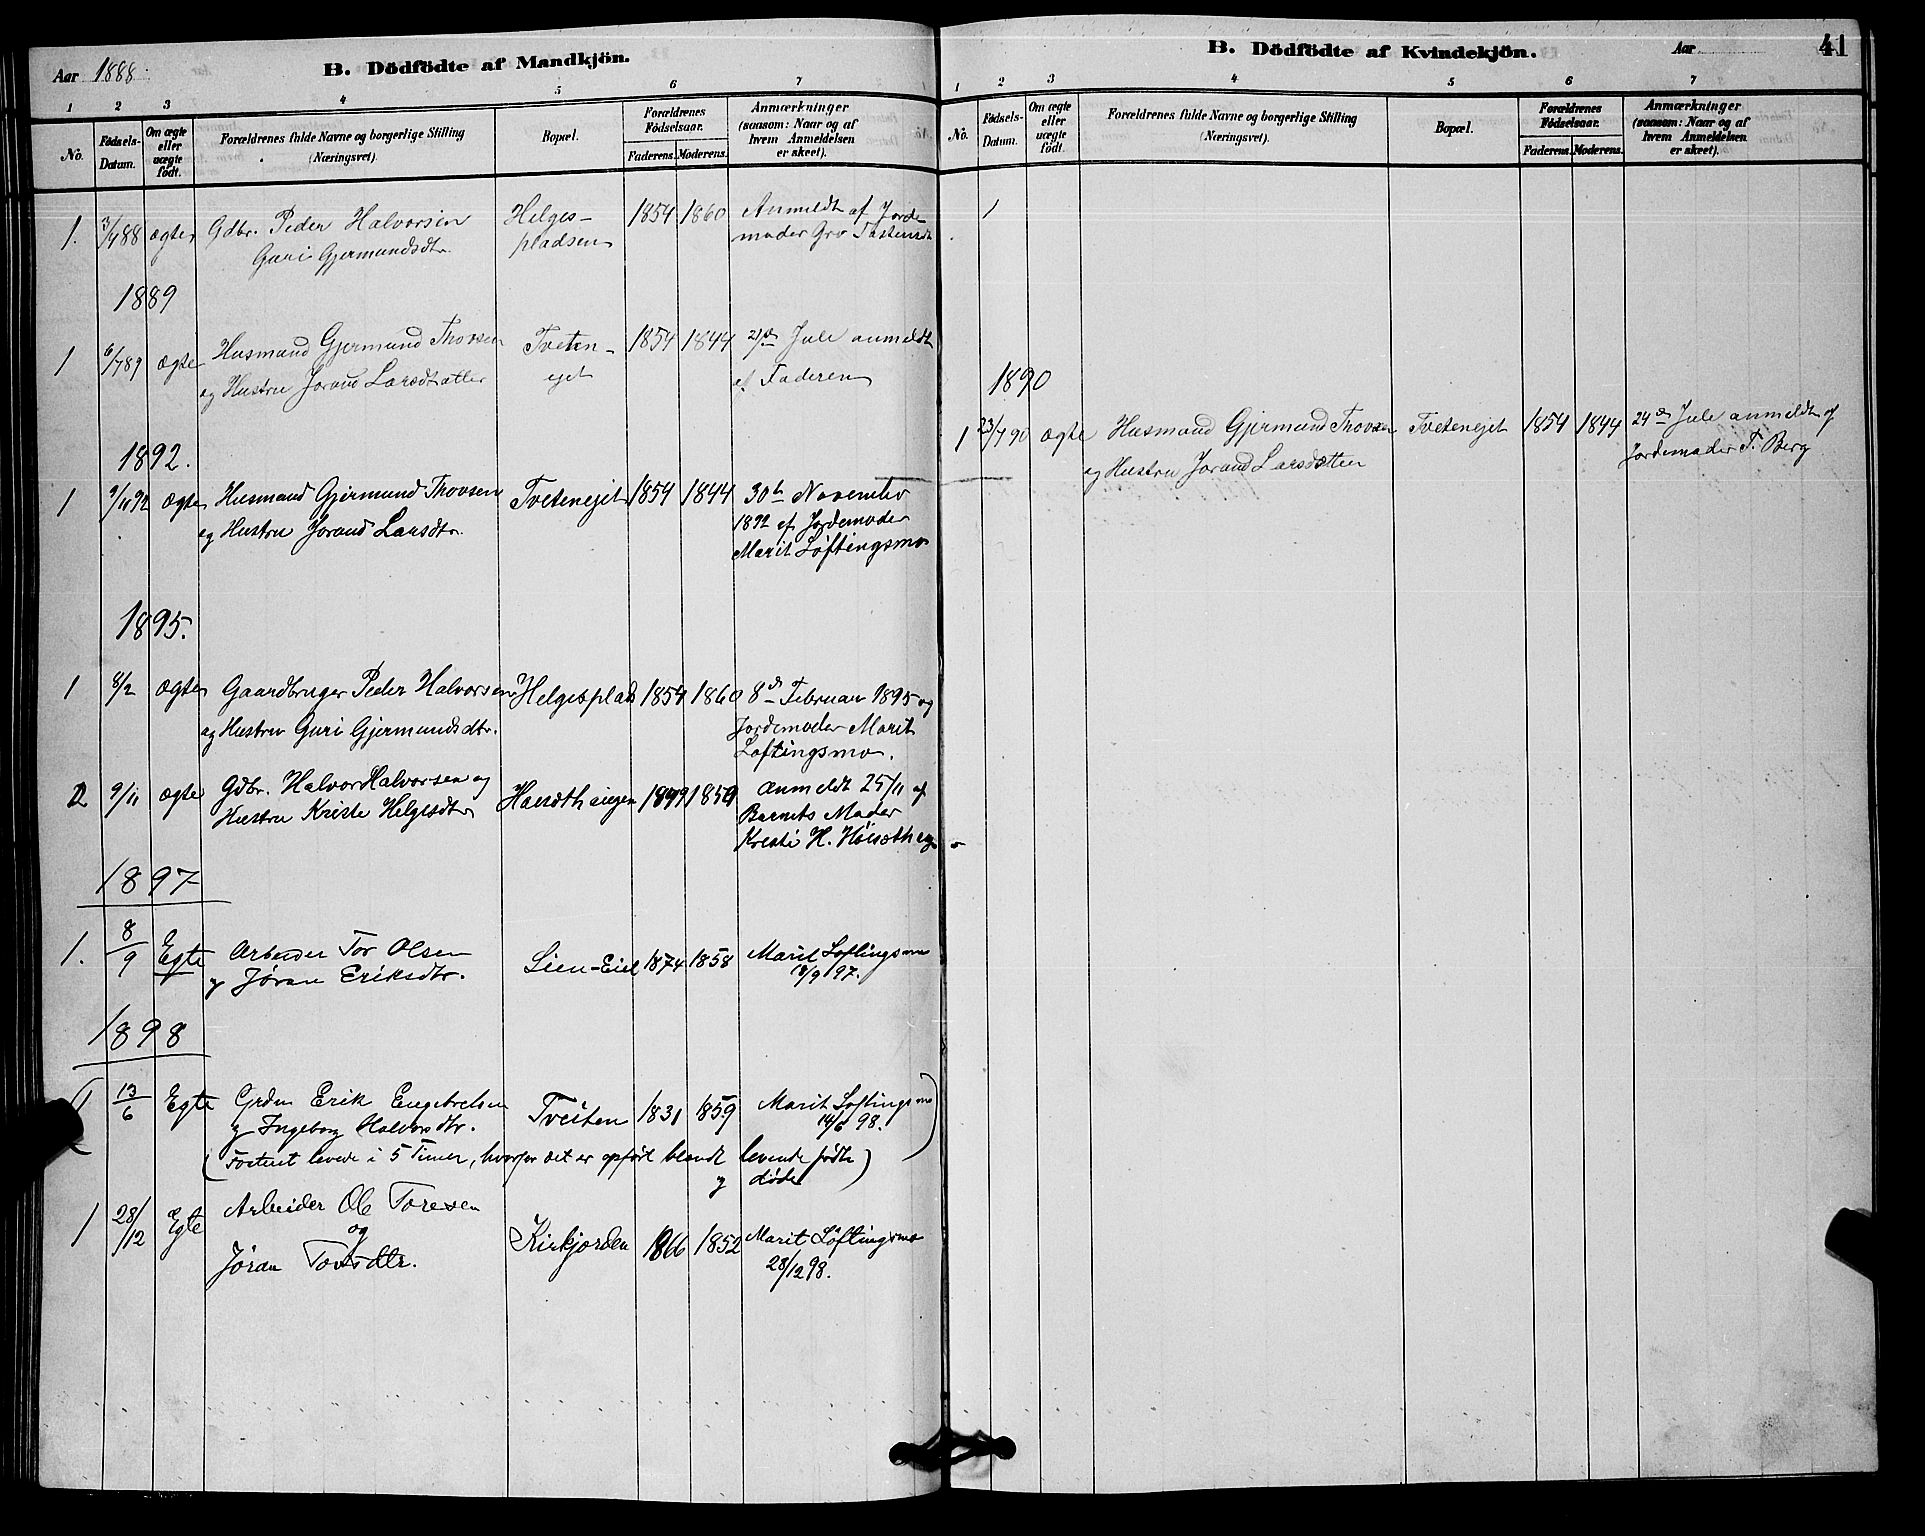 Aar 1888.
B. Dödfödte af Mandkjön.
1 2 3 4 5 6 7
No.
Födsels-
Datum.
Om ægte
eller
uægte
födt.
Forældrenes fulde Navne og borgerlige Stilling
(Næringsvei).
Bopæl.
Forældrenes
Födselsaar.
Faderens. Moderens.
Anmærkninger
(saasom: Naar og af
hvem Anmeldelsen
er skeet).
1. 3/7 88 ægte Gdbr. Peder Halvorsen Helges- 1854 1860 Anmeldt af Jorde-
Guri Gjermundsdtr. pladsen moder Gro
1889
1 6/7 89 ægte Husmand Gjermund Thovsen Tveten- 1854 1844 21de Jule anmeldt
og Hustru Joraud Larsdtatter ejet af Faderen
1892.
1 9/11 92 ægte Husmand Gjermund Thovsen Tvetenejet 1854 1844 30te November
og Hustru Joraud Larsdtr. 1892 af Jordemoder
Marit Løftingsmo
1895.
1 8/2 ægte Gaardbruger Peder Halvorsen Helgesplads 1854 1860 8de Februar 1895 af
og Hustru Guri Gjermundsdtr. Jordemoder Marit
Løftingsmo.
2 9/11 ægte Gdbr. Halvor Halvorsen og 1859 anmeldt 25/11 af
Hustru Kristi Helgesdtr Barnets Moder
Kristi H.
1897
1. 8/9 Egte Arbeider Tor Olsen Lien-Eiet 1874 1858 Marit Løftingsmo
og Jøran Eriksdtr. 18/9 97.
1898
(1 13/6 Egte Grdm Erik Engebretsen Tveiten 1831 1859 Marit Løftingsmo
og Ingeborg Halvorsdtr. 14/6 98. )
(Fosteret levede i 5 Timer, hvorfor det er opført blandt levende fødte
og døde)
1 28/12 Egte Arbeider Ole Toresen
og
Jøran Tovsdtr. Kirkjorden 1866 1852 Marit Løftingsmo
28/12 98.
B. Dödfödte af Kvindekjön.
Aar
41
1 2 3 4 5 6 7
No.
Födsels-
Datum.
Om ægte
eller
uægte
födt.
Forældrenes fulde Navne og borgerlige Stilling
(Næringsvei).
Bopæl.
Forældrenes
Födselsaar.
Faderens. Moderens.
Anmærkninger
(saasom: Naar og af
hvem Anmeldelsen
er skeet).
1890
1 23/7 90 ægte Husmand Gjermund Thovsen Tvetenejet 1854 1844 24de Jule anmeldt af
og Hustru Joraud Larsdatter Jordemoder T. Berg